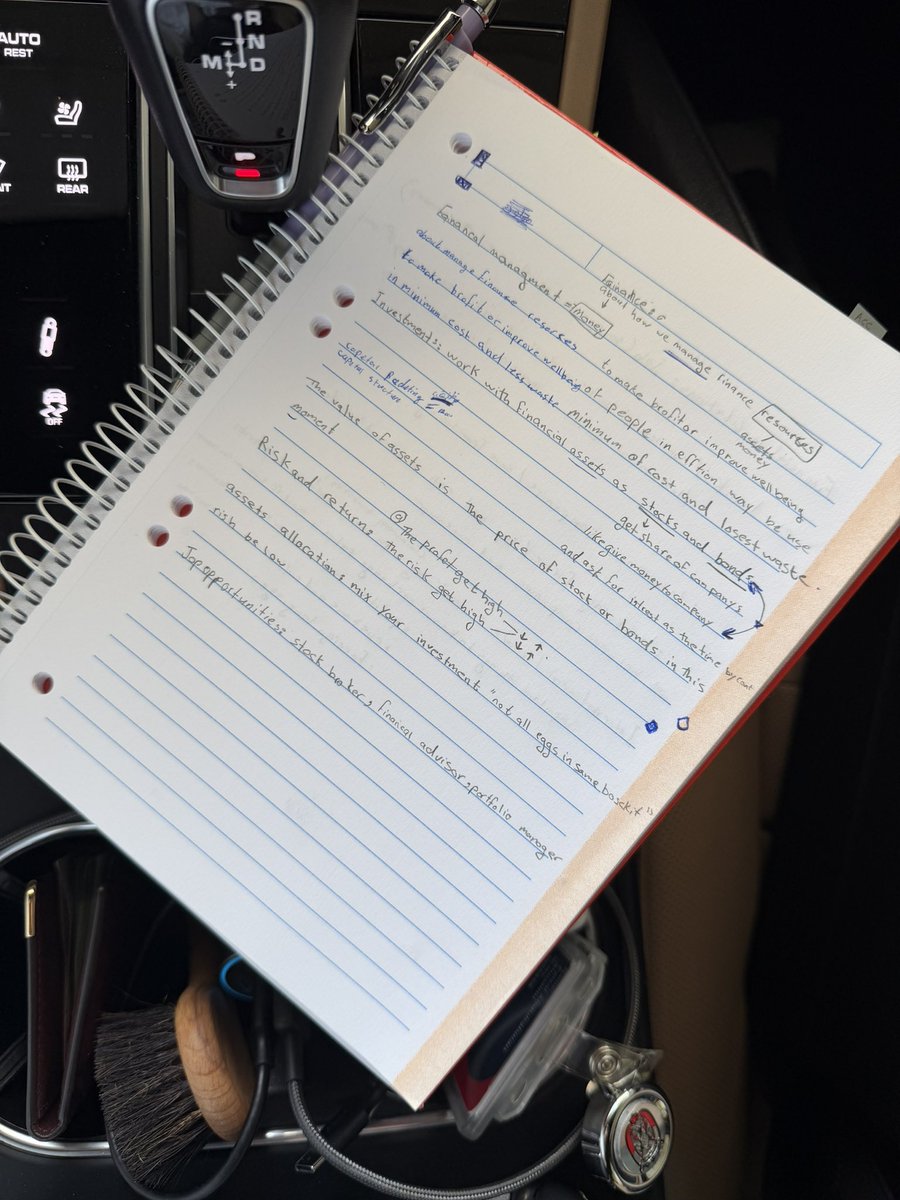 AUTO
REST
REAR
OFF
R
N
M D
+
ACC
Fainance:
about how we manage finance resources
assets
money
Financal managment = Money
to make profit or improve wellbeing
about manage finance resorses
of people in effition way be use
to make profit or improve wellbeing
minimum of cost and losest waste.
in minimum cost and less waste
Investment: work with financial assets as stocks and bonds
get share of companys
capital Budeting
capital structure
like give money to company
and ask for intrest as the time
The value of assets is the price of stock or bonds in this
moment
@The profet get high
Risk and return: the risk get high
assets allaration: mix your investment "not all eggs in same bosckit"
rish be low
Jop opportunities: stock broker, financal advisor, portfolio manager